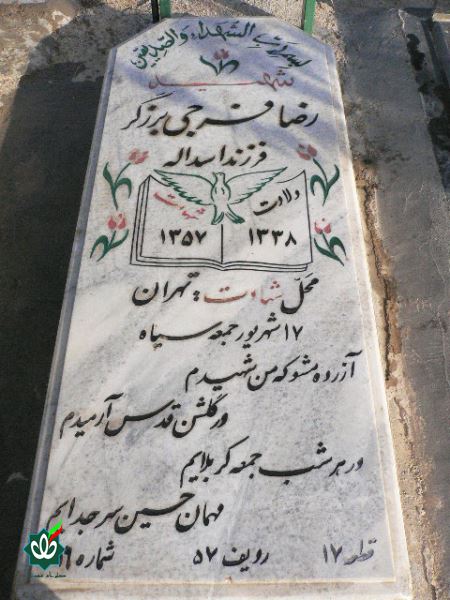 بسم رب الشهداء والصدیقین
شهید
رضا فرجی برزگر
فرزند اسداله
ولادت شهادت
۱۳۳۸ ۱۳۵۷
محل شهادت : تهران
۱۷ شهریور جمعه سیاه
آزرده مشو که من شهیدم
در گلشن قدس آرمیدم
در هر شب جمعه کربلایم
مهمان حسین سر جدایم
قطعه ۱۷ ردیف ۵۷ شماره